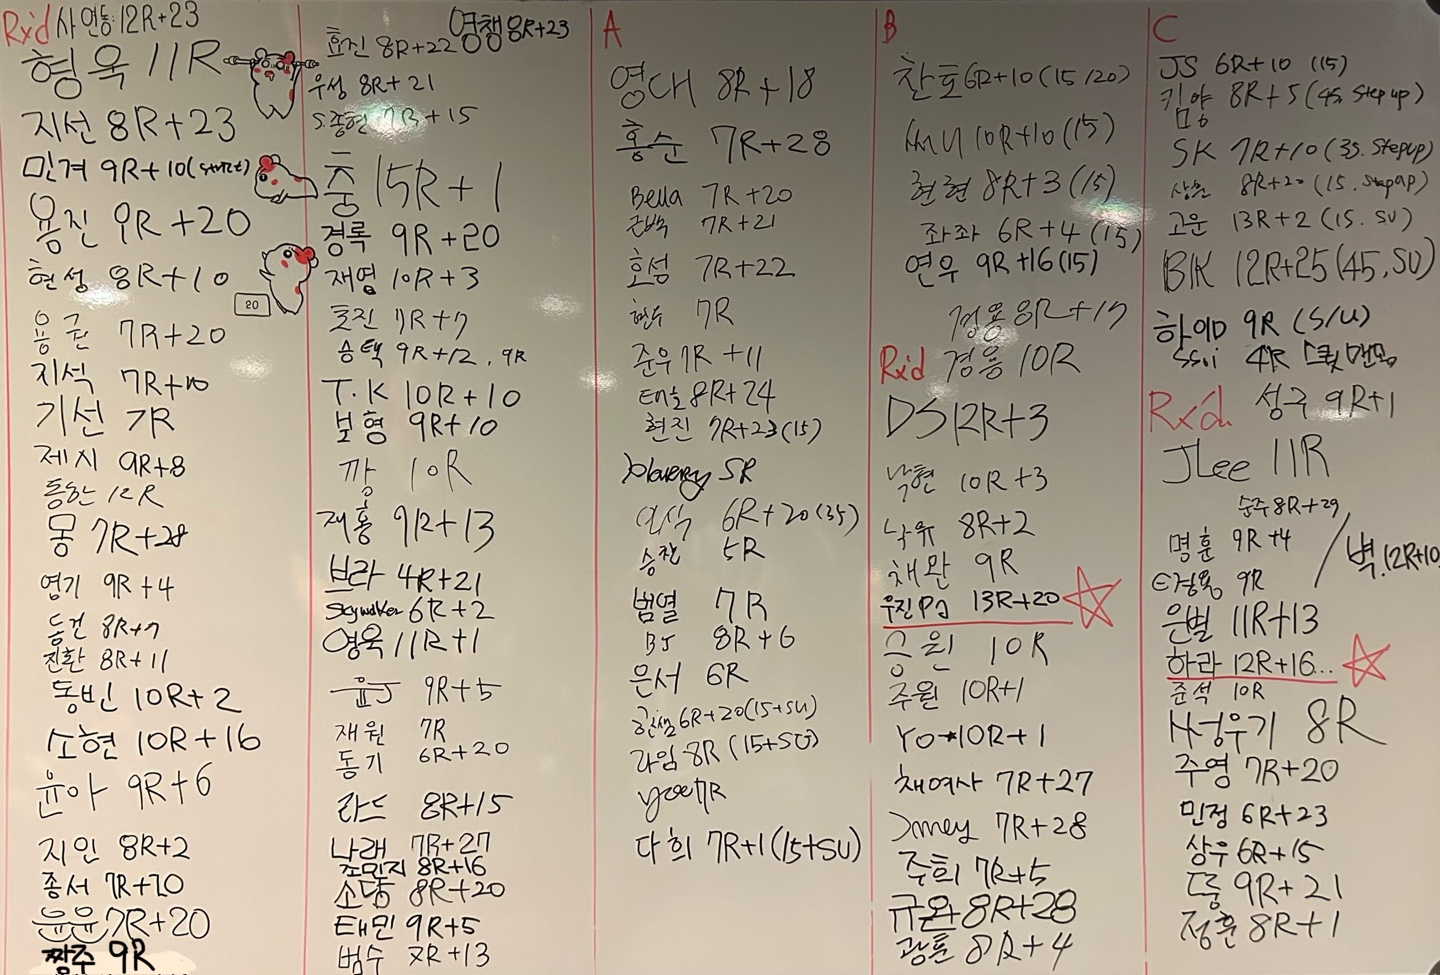 Rx'd 사연동: 12R+23
형욱 11R
지선 8R+23
민겨 9R+10
용진 9R+20
현성 8R+10
20
용권 7R+20
지석 7R+10
기선 7R
제시 9R+8
동한 12R
몽 7R+28
엽기 9R+4
동건 8R+7
진환 8R+11
동빈 10R+2
소현 10R+16
윤아 9R+6
지인 8R+2
종서 7R+20
윤윤 7R+20
짱주 9R
영챙 8R+23
효진 8R+22
우성 8R+21
S.종현 7R+15
중 15R+1
경록 9R+20
재영 10R+3
호진 7R+7
승택 9R+12, 9R
T.K 10R+10
보형 9R+10
깡 10R
재홍 9R+13
브라 4R+21
Skywalker 6R+2
영욱 11R+1
윤J 9R+5
재원 7R
동기 6R+20
라드 8R+15
나래 7R+27
조민지 8R+16
소당 8R+20
태민 9R+5
범수 7R+13
A
영대 8R+18
홍순 7R+28
Bella 7R+20
근백 7R+21
호섬 7R+22
현수 7R
준우 7R+11
태호 8R+24
현진 7R+23(15)
5R
인식 6R+20(35)
승찬 5R
범열 7R
BJ 8R+6
은서 6R
한샘 6R+20(15+SU)
라임 8R(15+SU)
yoe 7R
다희 7R+1(15+SU)
B
찬호 6R+10(15/20)
써니 10R+10(15)
현현 8R+3(15)
좌좌 6R+4(15)
연우 9R+16(15)
경용 8R+17
Rx'd 경용 10R
DS 12R+3
낙현 10R+3
낙유 8R+2
채완 9R
우진PG 13R+20
응원 10R
주원 10R+1
Yo 10R+1
채여사 7R+27
7R+28
주희 7R+5
규완 8R+28
광훈 8R+4
C
JS 6R+10 (15)
킴양 8R+5(45, Step up)
SK 7R+10(35. Step up)
상훈 8R+20(15. Step up)
고운 13R+2(15. SU)
BK 12R+25(45, SU)
하임 9R (S/U)
SSii 4R
Rx'd. 성구 9R+1
JLee 11R
순주 8R+29
명훈 9R+4
벽.12R+10
E경용 9R
은별 11R+13
하라 12R+16...
준석 10R
서영우기 8R
주영 7R+20
민정 6R+23
상우 6R+15
드롱 9R+21
정훈 8R+1